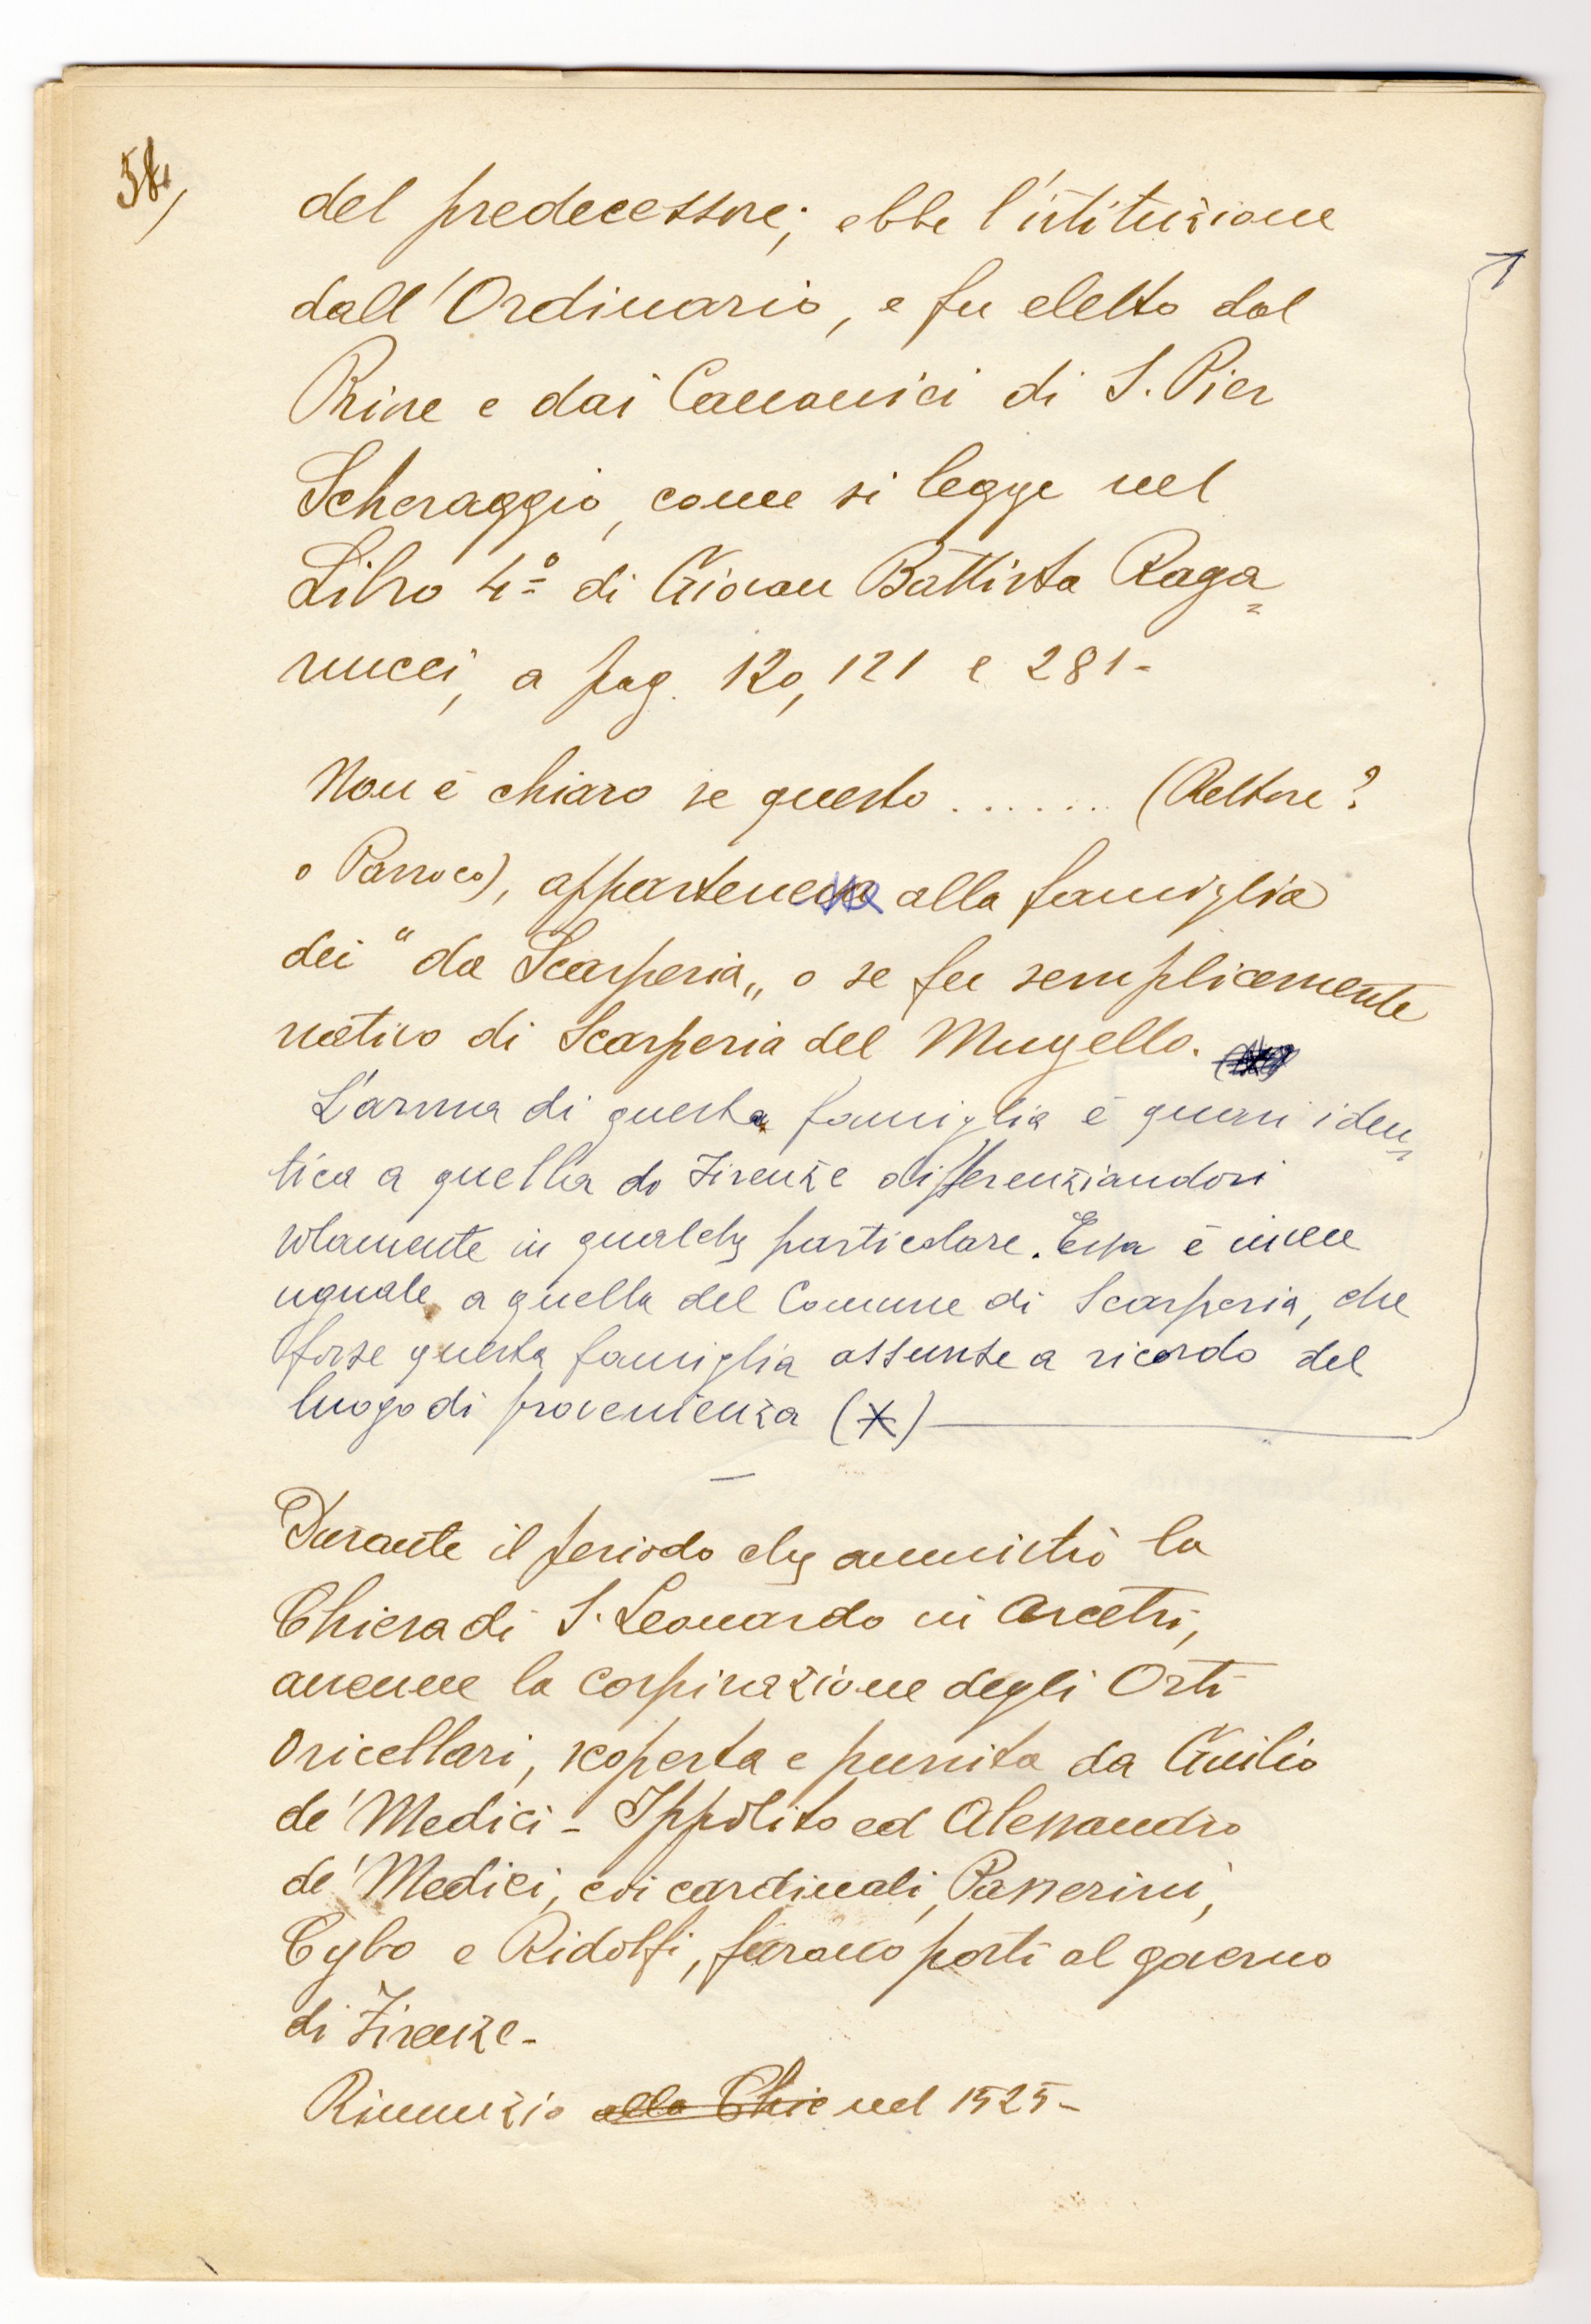 58,
del predecessore; ebbe l'istituzione
dall'Ordinario, e fu eletto dal
Priore e dai Canonici di S. Pier
Scheraggio, come si legge nel
Libro 4º di Giovan Battista Raga=
nucci, a pag. 120, 121 e 281-
Non è chiaro se questo ...... (Rettore?
o Parroco), appartenne alla famiglia
dei "da Scarperia„ o se fu semplicemente
nativo di Scarperia del Mugello.
L'arma di questa famiglia è quasi iden=
tica a quella da Firenze differenziandosi
solamente in qualche particolare. Essa è invece
uguale a quella del Comune di Scarperia, che
forse questa famiglia assunse a ricordo del
luogo di provenienza (*)
Durante il periodo che amministrò la
Chiesa di S. Leonardo in Arcetri,
avvenne la cospirazione degli Orti
Oricellari, scoperta e punita da Giulio
de' Medici - Ippolito ed Alessandro
de' Medici, coi cardinali, Passerini,
Cybo e Ridolfi, furono posti al governo
di Firenze-
Rinunziò alla Chie nel 1525-